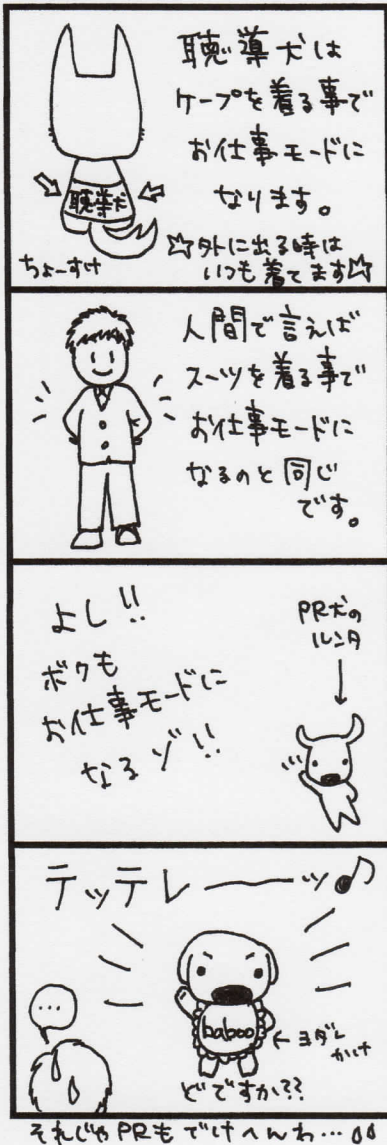 聴導犬は
ケープを着る事で
お仕事モードに
なります。
☆外に出る時は
いつも着てます☆
聴導犬
ちょーすけ
人間で言えば
スーツを着る事で
お仕事モードに
なるのと同じ
です。
よし!!
ボクも
お仕事モードに
なるゾ!!
PR犬の
ルンタ
テッテレーーッ♪
...
baboo
←ヨダレ
かけ
どですか??
それじゃPRもでけへんわ…